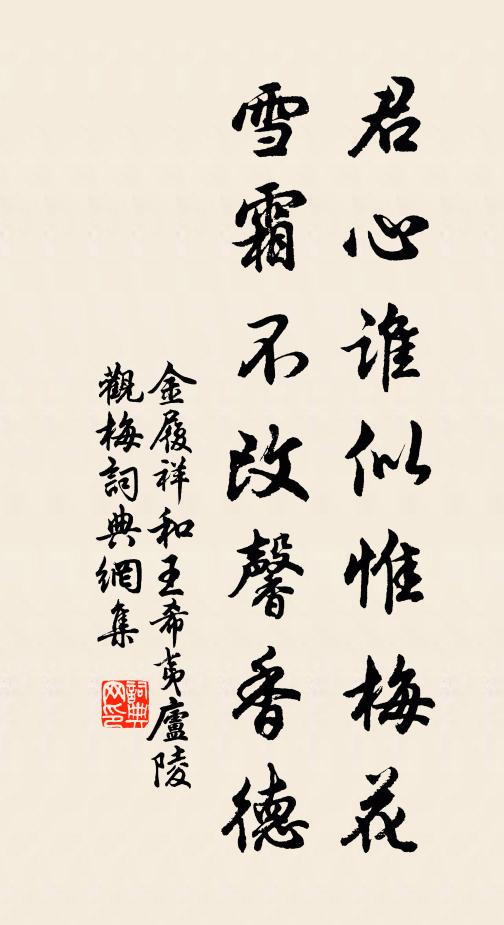 君心誰似惟梅花
雪霜不改馨香德
金履祥和王希夷廬陵
觀梅詞典網集
詞典
网印